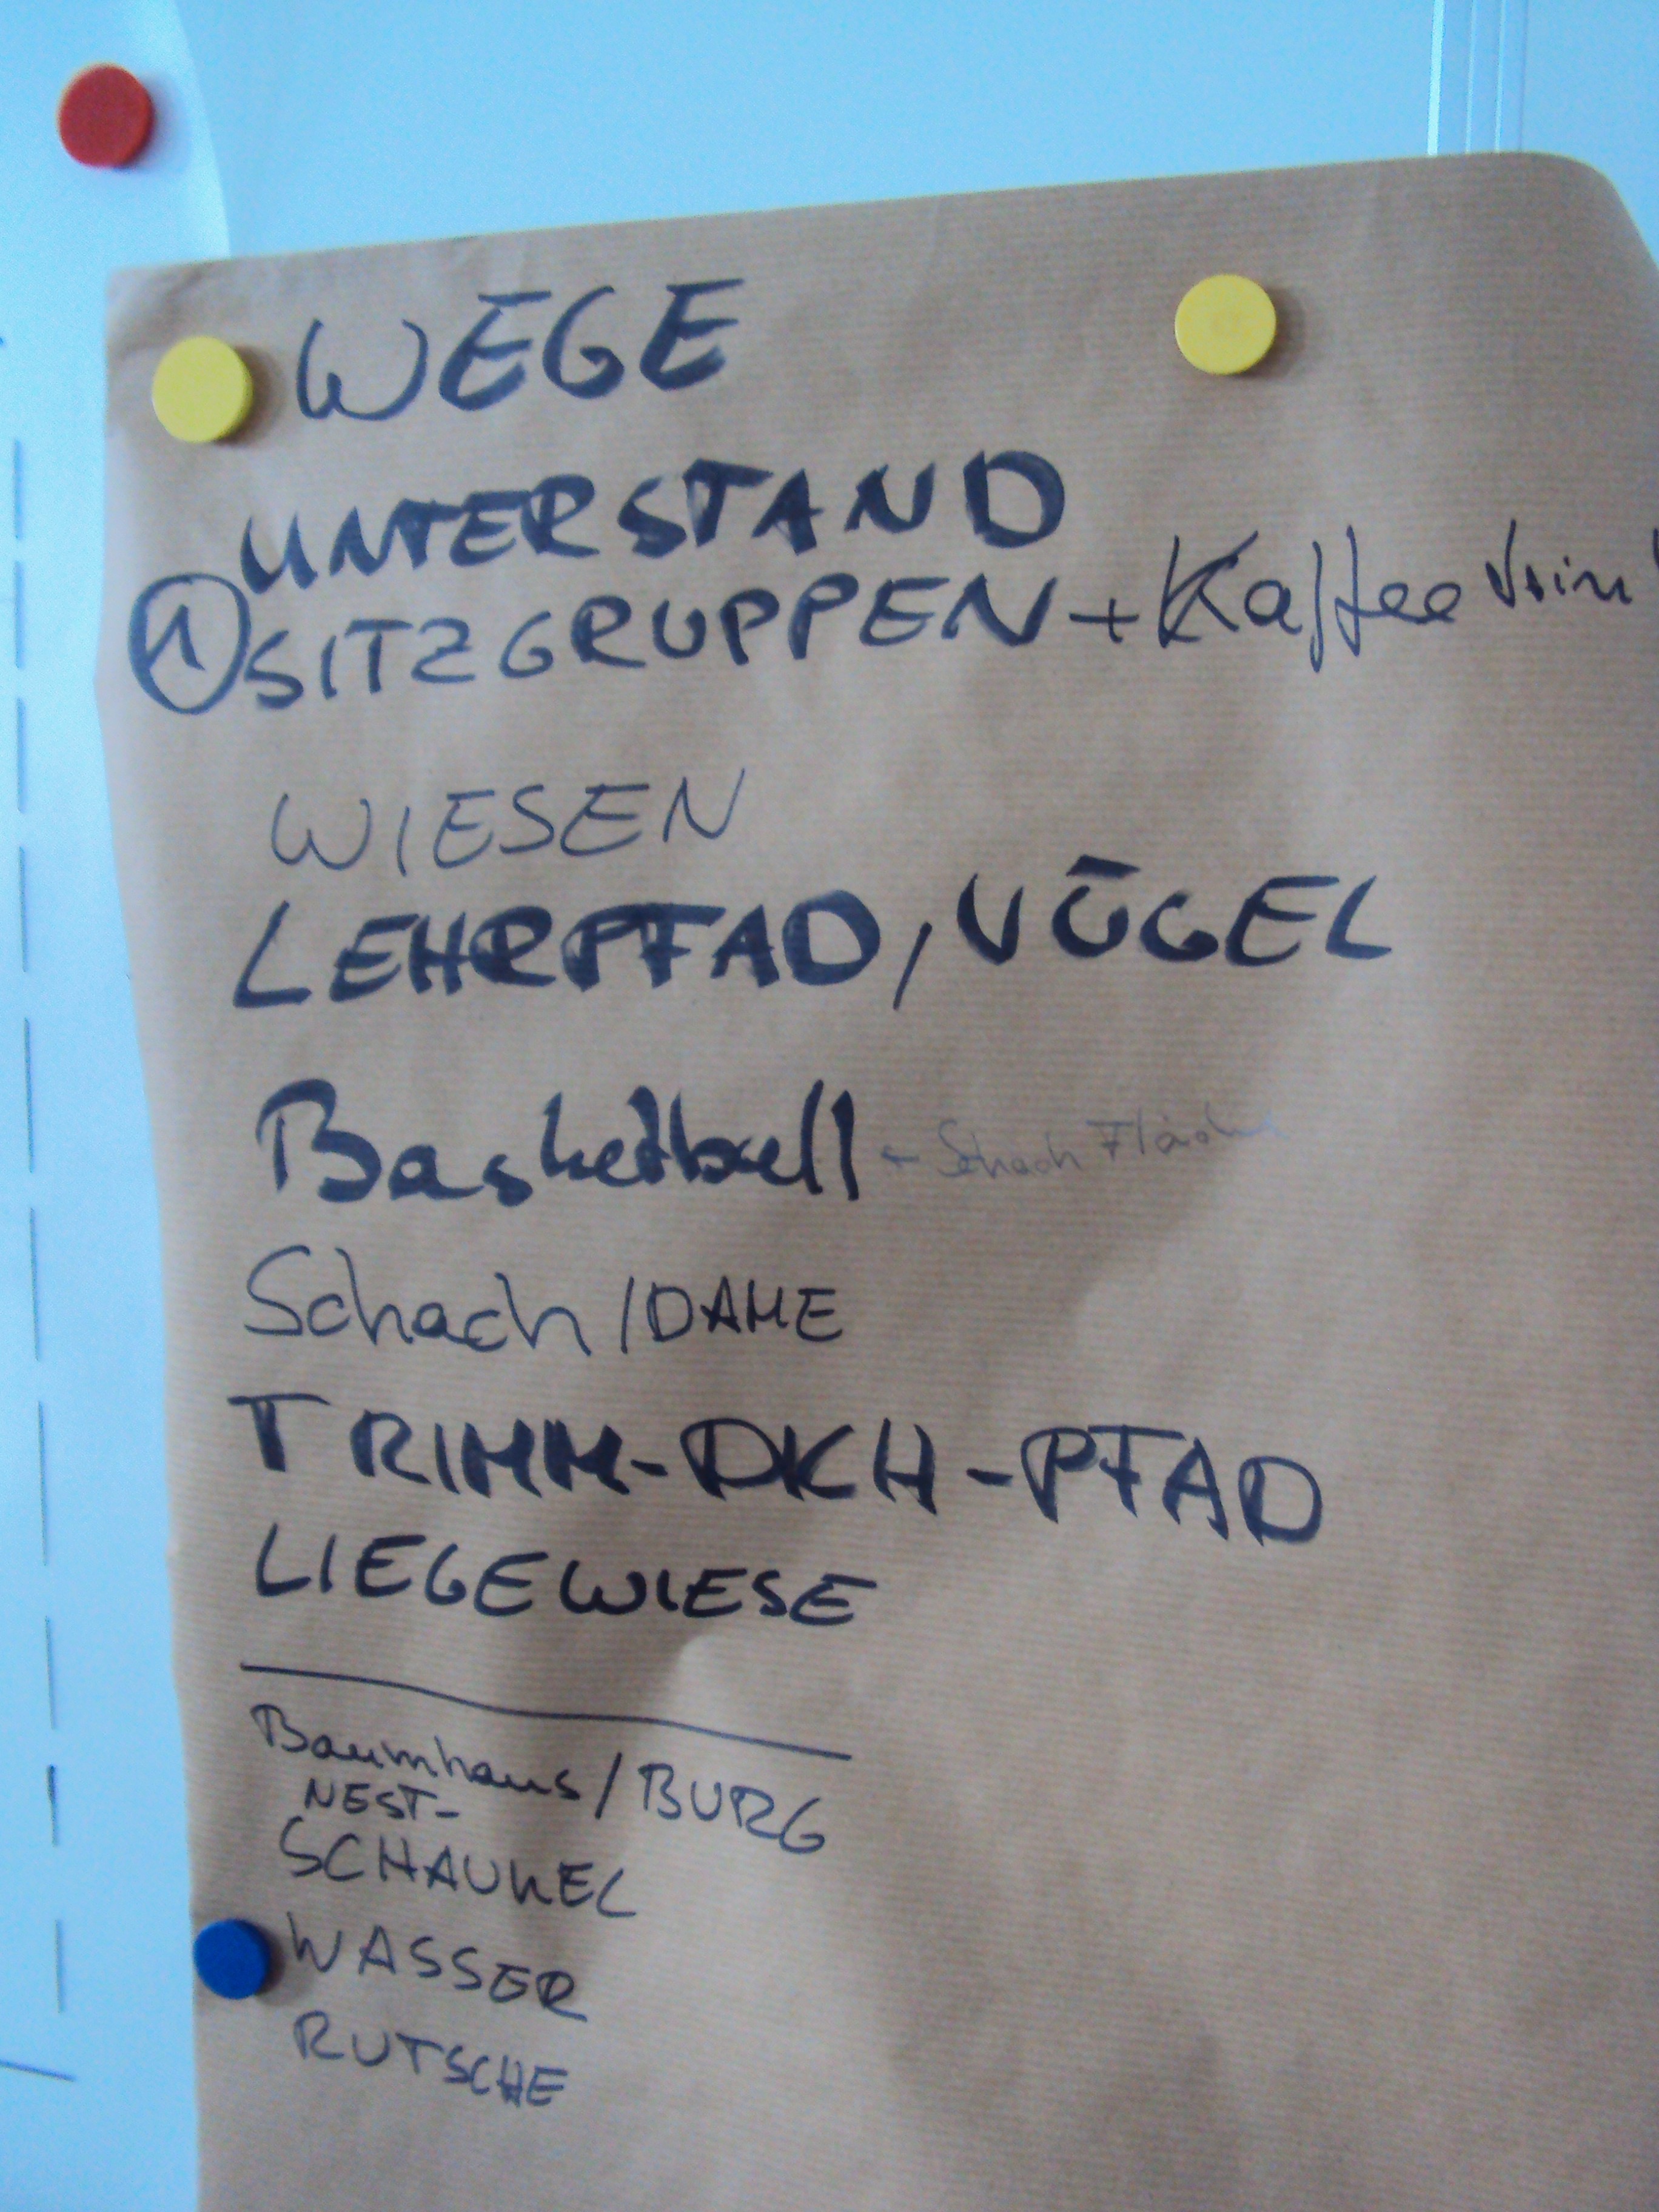 WEGE
UNTERSTAND
① SITZGRUPPEN + Kaffee
WIESEN
LEHRPFAD, VÖGEL
Basketball + Schach Fläche
Schach / DAME
TRIMM-DICH-PFAD
LIEGEWIESE
Baumhaus / BURG
NEST-
SCHAUKEL
WASSER
RUTSCHE